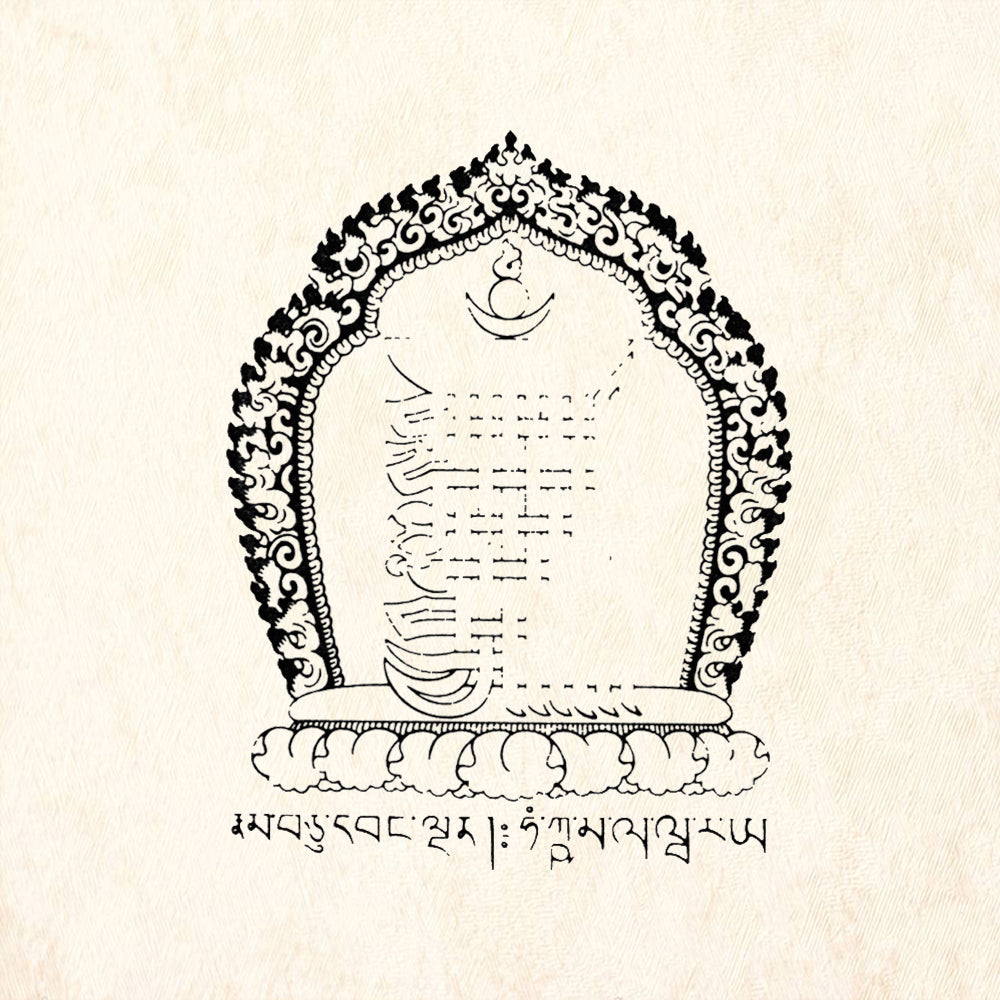 རྣམ་བཅུ་དབང་ལྡན།ཿ ཧཾ་ཀྵ་མ་ལ་